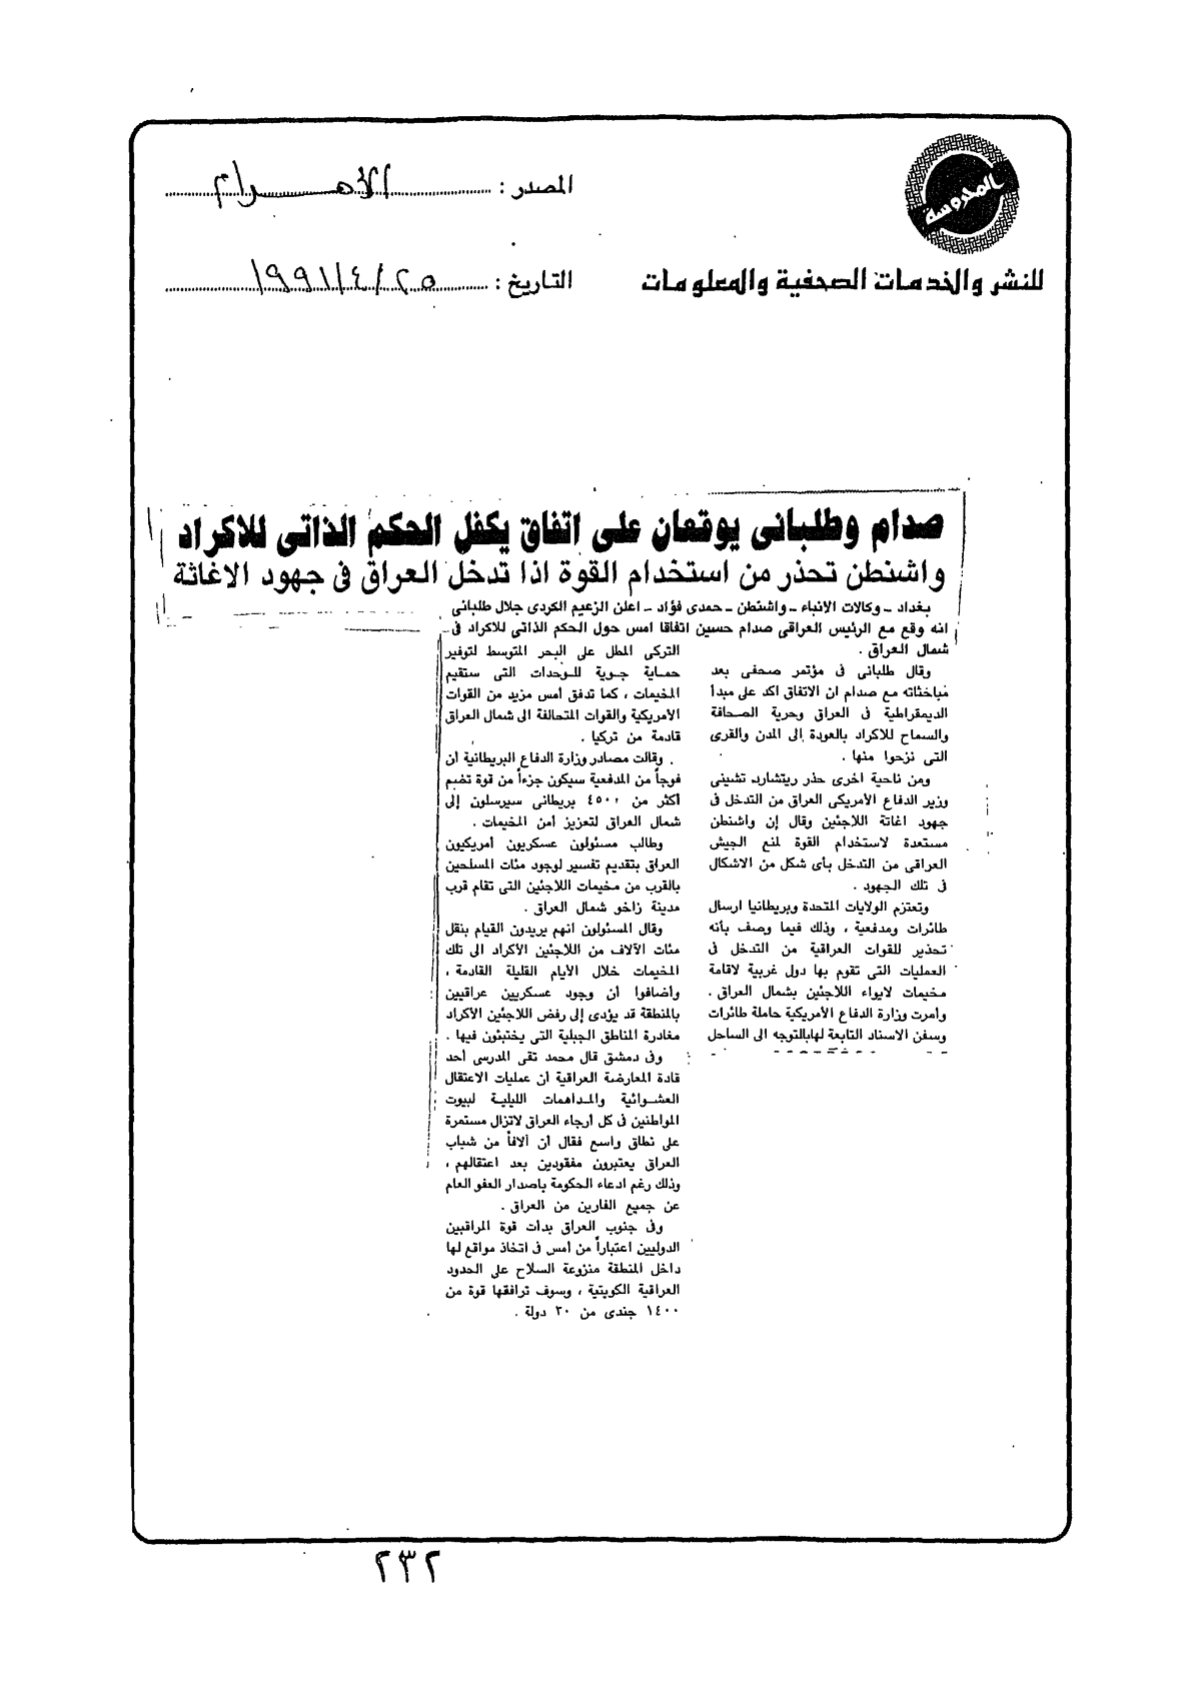 المحروسة
المصدر : الأهرام
للنشر والخدمات الصحفية والمعلومات
التاريخ : ٢٥/٤/١٩٩١
صدام وطلبانى يوقعان على اتفاق يكفل الحكم الذاتى للاكراد
واشنطن تحذر من استخدام القوة اذا تدخل العراق فى جهود الاغاثة
بغداد - وكالات الانباء - واشنطن - حمدى فؤاد - اعلن الزعيم الكردى جلال طلبانى
انه وقع مع الرئيس العراقى صدام حسين اتفاقا امس حول الحكم الذاتى للاكراد فى
شمال العراق .
وقال طلبانى فى مؤتمر صحفى بعد
مباحثاته مع صدام ان الاتفاق اكد على مبدأ
الديمقراطية فى العراق وحرية الصحافة
والسماح للاكراد بالعودة إلى المدن والقرى
التى نزحوا منها .
ومن ناحية اخرى حذر ريتشارد تشينى
وزير الدفاع الأمريكى العراق من التدخل فى
جهود اغاثة اللاجئين وقال إن واشنطن
مستعدة لاستخدام القوة لمنع الجيش
العراقى من التدخل بأى شكل من الاشكال
فى تلك الجهود .
وتعتزم الولايات المتحدة وبريطانيا ارسال
طائرات ومدفعية ، وذلك فيما وصف بأنه
تحذير للقوات العراقية من التدخل فى
العمليات التى تقوم بها دول غربية لاقامة
مخيمات لايواء اللاجئين بشمال العراق .
وأمرت وزارة الدفاع الأمريكية حاملة طائرات
وسفن الاسناد التابعة لهابالتوجه الى الساحل
التركى المطل على البحر المتوسط لتوفير
حماية جوية للوحدات التى ستقيم
المخيمات ، كما تدفق أمس مزيد من القوات
الأمريكية والقوات المتحالفة الى شمال العراق
قادمة من تركيا .
وقالت مصادر وزارة الدفاع البريطانية أن
فوجاً من المدفعية سيكون جزءاً من قوة تضم
أكثر من ٤٥٠٠ بريطانى سيرسلون إلى
شمال العراق لتعزيز أمن المخيمات .
وطالب مسئولون عسكريون أمريكيون
العراق بتقديم تفسير لوجود مئات المسلحين
بالقرب من مخيمات اللاجئين التى تقام قرب
مدينة زاخو شمال العراق .
وقال المسئولون انهم يريدون القيام بنقل
مئات الآلاف من اللاجئين الأكراد الى تلك
المخيمات خلال الأيام القليلة القادمة ،
وأضافوا أن وجود عسكريين عراقيين
بالمنطقة قد يؤدى إلى رفض اللاجئين الأكراد
مغادرة المناطق الجبلية التى يختبئون فيها .
وفى دمشق قال محمد تقى المدرسى أحد
قادة المعارضة العراقية أن عمليات الاعتقال
العشوائية والمداهمات الليلية لبيوت
المواطنين فى كل أرجاء العراق لاتزال مستمرة
على نطاق واسع فقال أن آلافاً من شباب
العراق يعتبرون مفقودين بعد اعتقالهم ،
وذلك رغم ادعاء الحكومة باصدار العفو العام
عن جميع الفارين من العراق .
وفى جنوب العراق بدأت قوة المراقبين
الدوليين اعتباراً من أمس فى اتخاذ مواقع لها
داخل المنطقة منزوعة السلاح على الحدود
العراقية الكويتية ، وسوف ترافقها قوة من
١٤٠٠ جندى من ٢٠ دولة .
٢٣٢